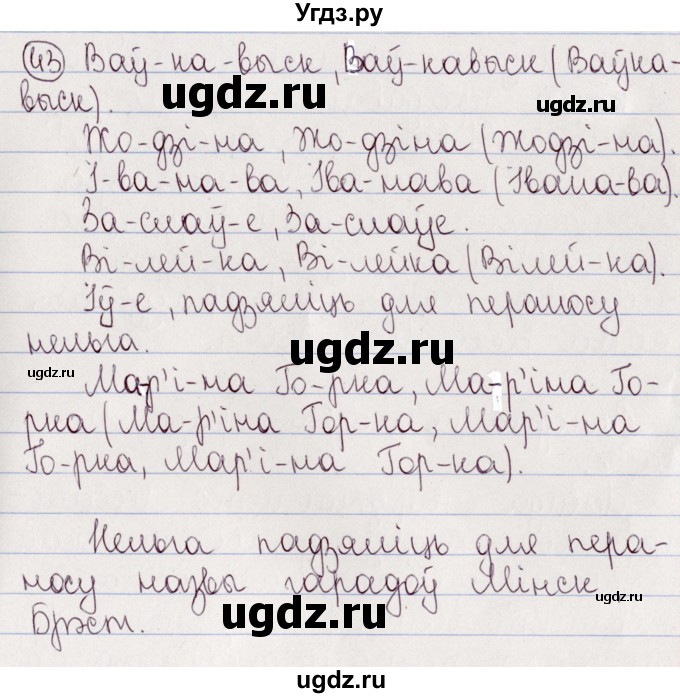 Угдз.ру
43 Ваў-ка-выск, Ваў-кавыск (Ваўка-
выск).
ugdz.ru
ugdz.ru
Жо-дзі-на, Жо-дзіна (Жодзі-на).
І-ва-на-ва, Іва-нава (Івана-ва).
За-слаў-е, За-слаўе.
Ві-лей-ка, Ві-лейка (Вілей-ка).
Іў-е, падзяліць для пераносу
нельга.
ugdz.ru
ugdz.ru
Мар'і-на Го-рка, Ма-р'іна Го-
рка (Ма-р'іна Гор-ка, Мар'і-на
Го-рка, Мар'і-на Гор-ка).
Нельга падзяліць для пера-
носу назвы гарадоў Мінск
Брэст.
ugdz.ru
ugdz.ru
ugdz.ru